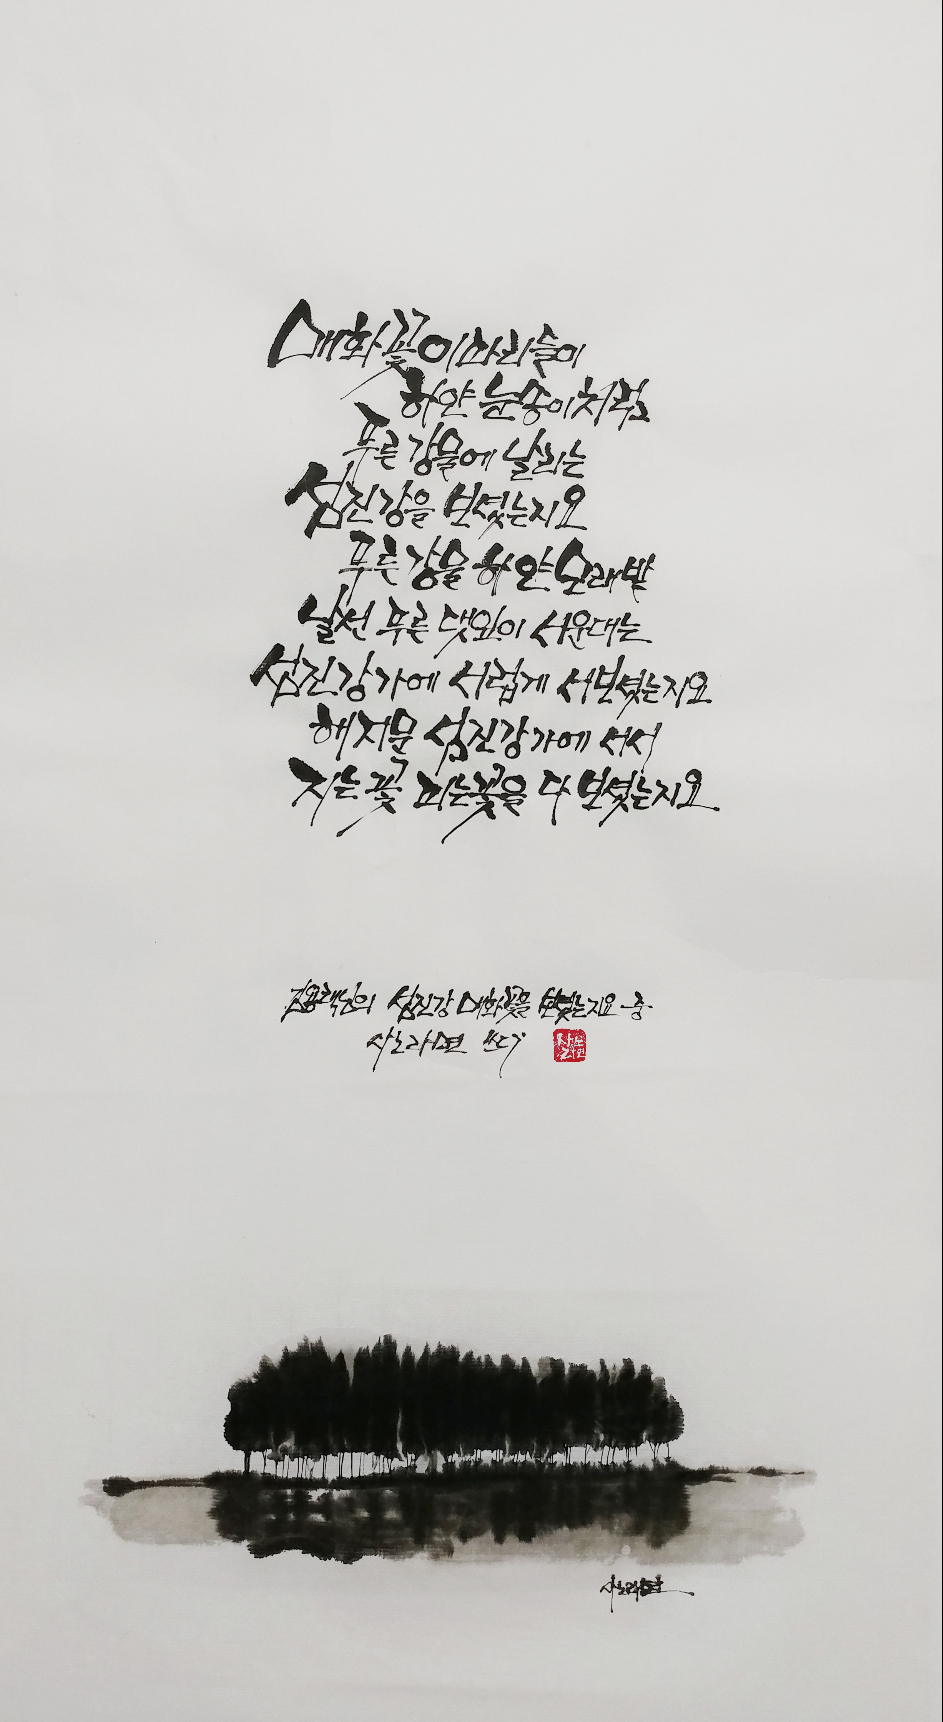 매화꽃 이파리들이
하얀 눈송이처럼
푸른 강물에 날리는
섬진강을 보셨는지요
푸른 강물 하얀 모래밭
날선 푸른 댓잎이 사운대는
섬진강가에 서럽게 서보셨는지요
해저문 섬진강가에 서서
지는 꽃 피는 꽃을 다 보셨는지요
김용택님의 섬진강 매화꽃을 보셨는지요 중
사노라면 쓰다
사노라면
사노라면